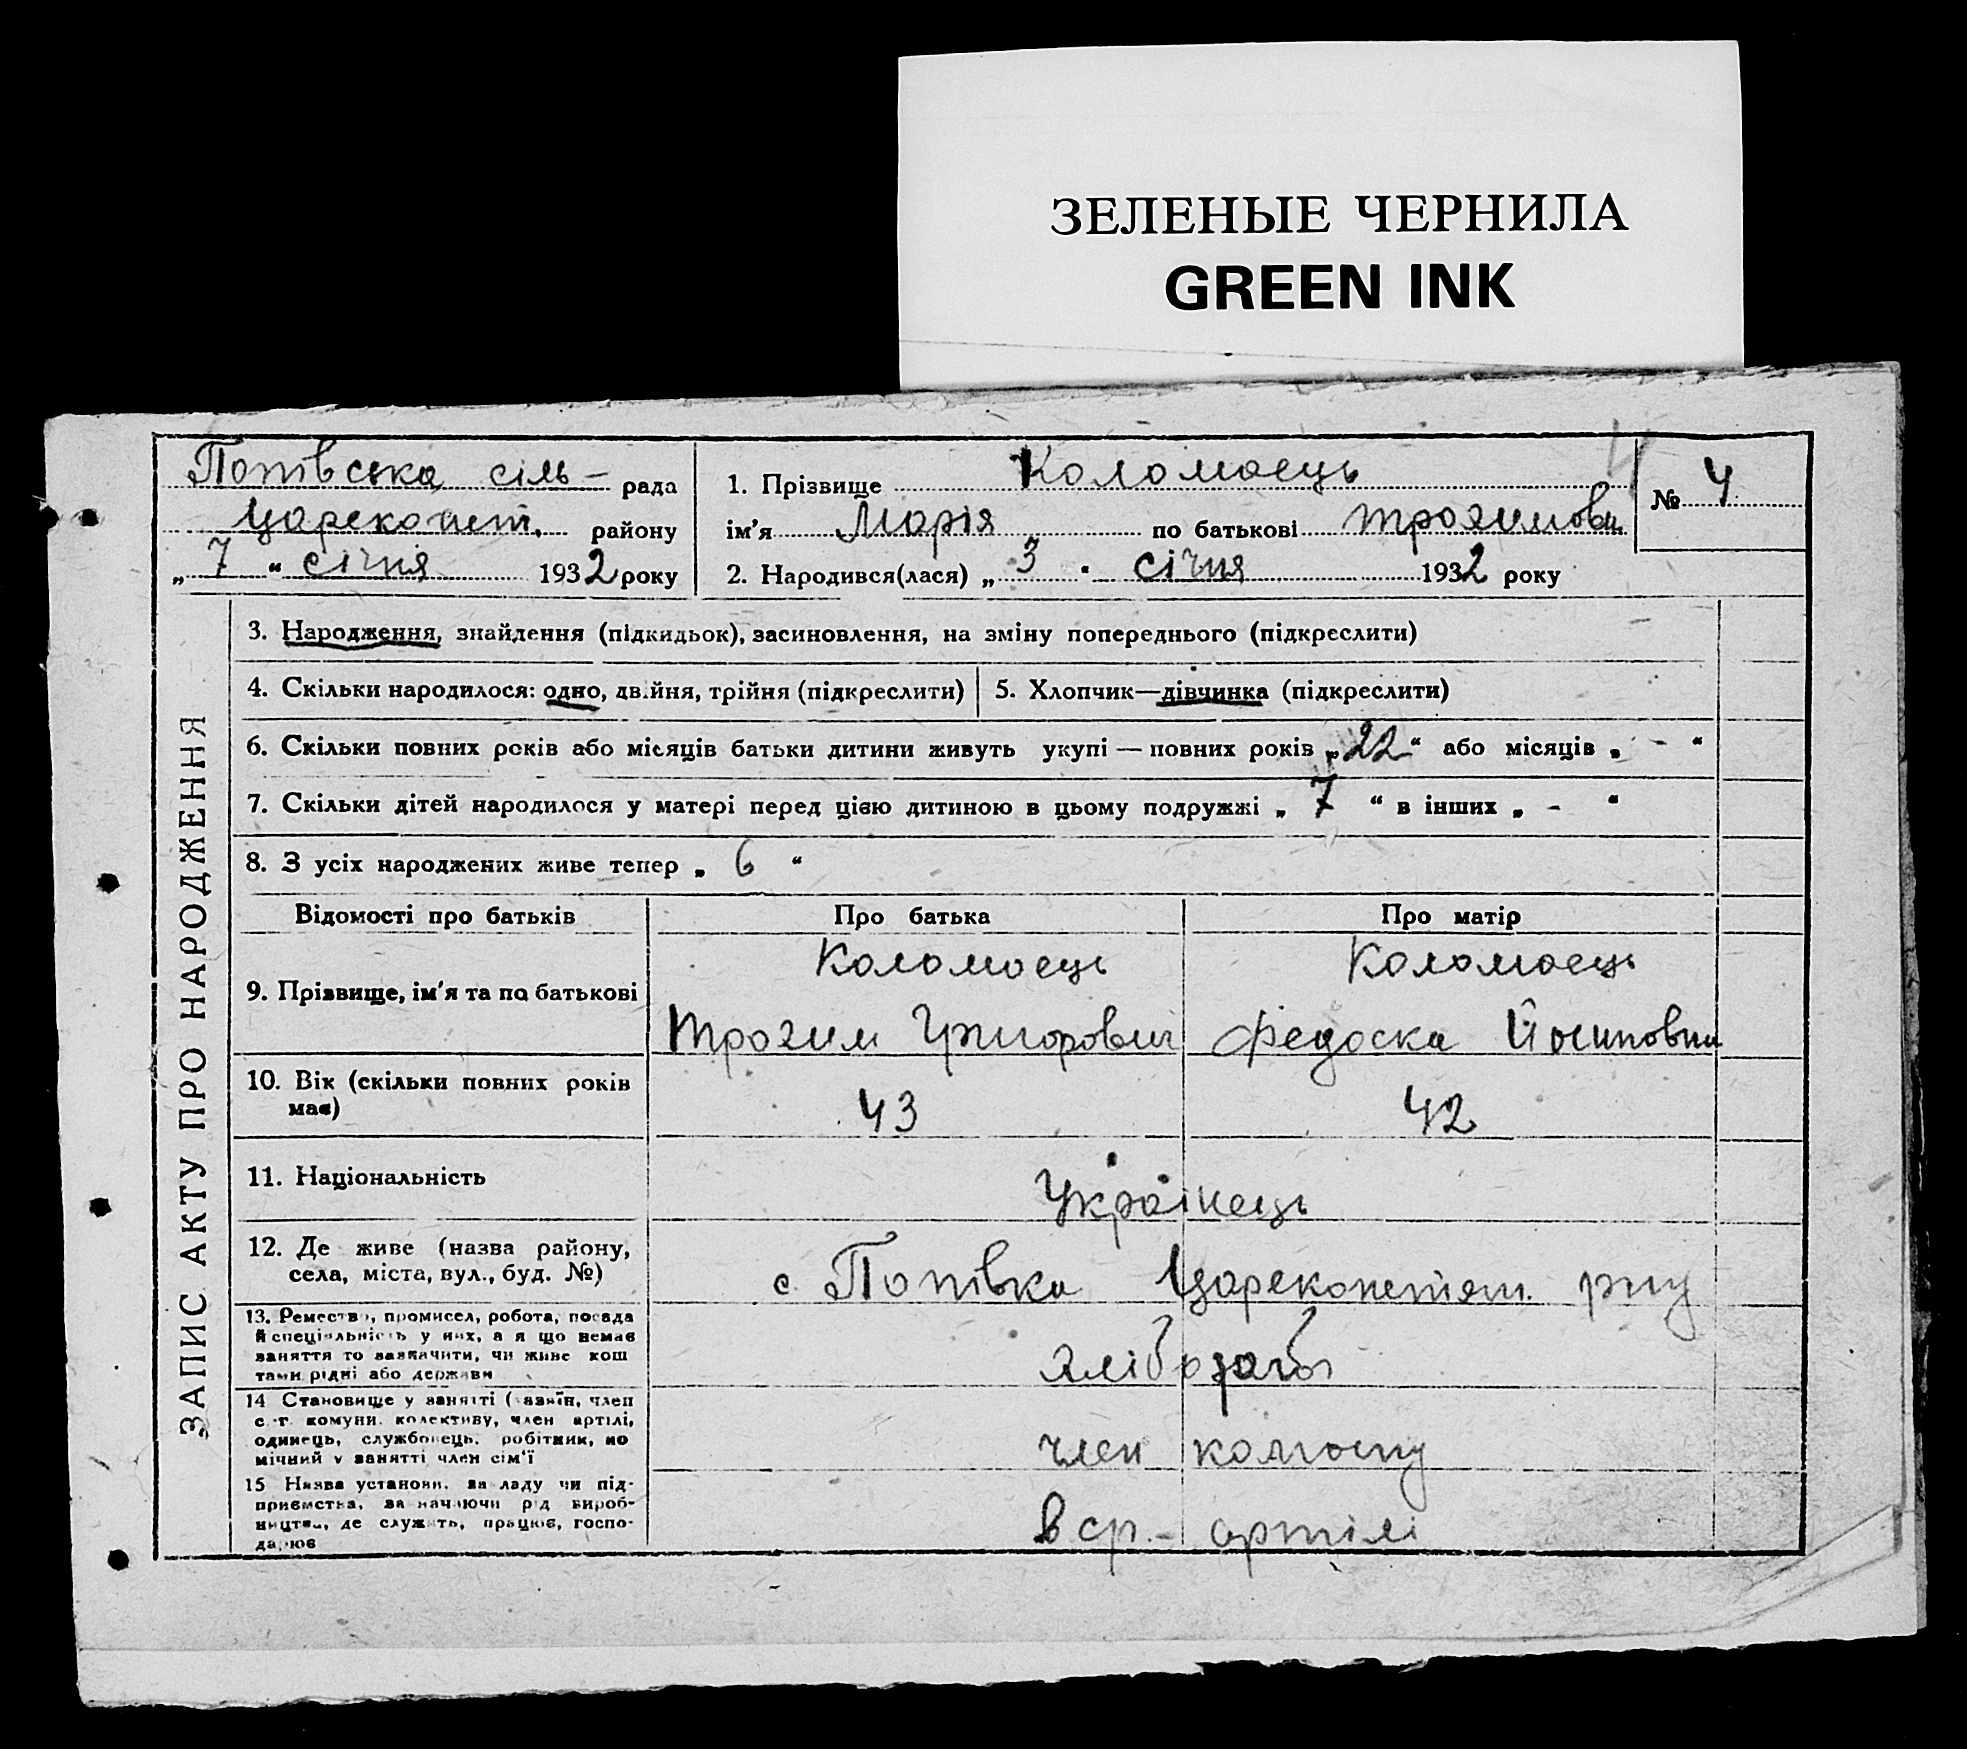 ЗЕЛЕНЫЕ ЧЕРНИЛА
GREEN INK
Попівська сіль- рада
Цареконст. району
„ 7 “ січня 1932 року
1. Прізвище Коломоєць
ім’я Марія по батькові Трохимовн
2. Народився(лася) „ 3 “ січня 1932 року
№ 4
ЗАПИС АКТУ ПРО НАРОДЖЕННЯ
3. Народження, знайдення (підкидьок), засиновлення, на зміну попереднього (підкреслити)
4. Скільки народилося: одно, двійня, трійня (підкреслити)
5. Хлопчик—дівчинка (підкреслити)
6. Скільки повних років або місяців батьки дитини живуть укупі — повних років „22“ або місяців „ - “
7. Скільки дітей народилося у матері перед цією дитиною в цьому подружжі „ 7 “ в інших „ - “
8. З усіх народжених живе тепер „ 6 “
Відомості про батьків Про батька Про матір
9. Прізвище, ім’я та по батькові
Коломоєць Коломоєць
Трохим Григорович Федоска Йосиповна
10. Вік (скільки повних років має)
43 42
11. Національність
Українець
12. Де живе (назва району,
села, міста, вул., буд. №)
с. Попівка Цареконстян. р-ну
13. Ремество, промисел, робота, посада
й спеціяльність у них, а я що немає
заняття то зазначити, чи живе кош
тами рідні або держави
хлібороб
14 Становище у занятті (хазяїн, член
с.-г. комуни, колективу, член артілі,
одинець, службовець, робітник, по
мічний у занятті член сім’ї
член колгоспу
15 Назва установи, закладу чи під-
приємства, зазначаючи рід вироб-
ництва, де служить, працює, госпо-
дарює
в с.г.- артілі